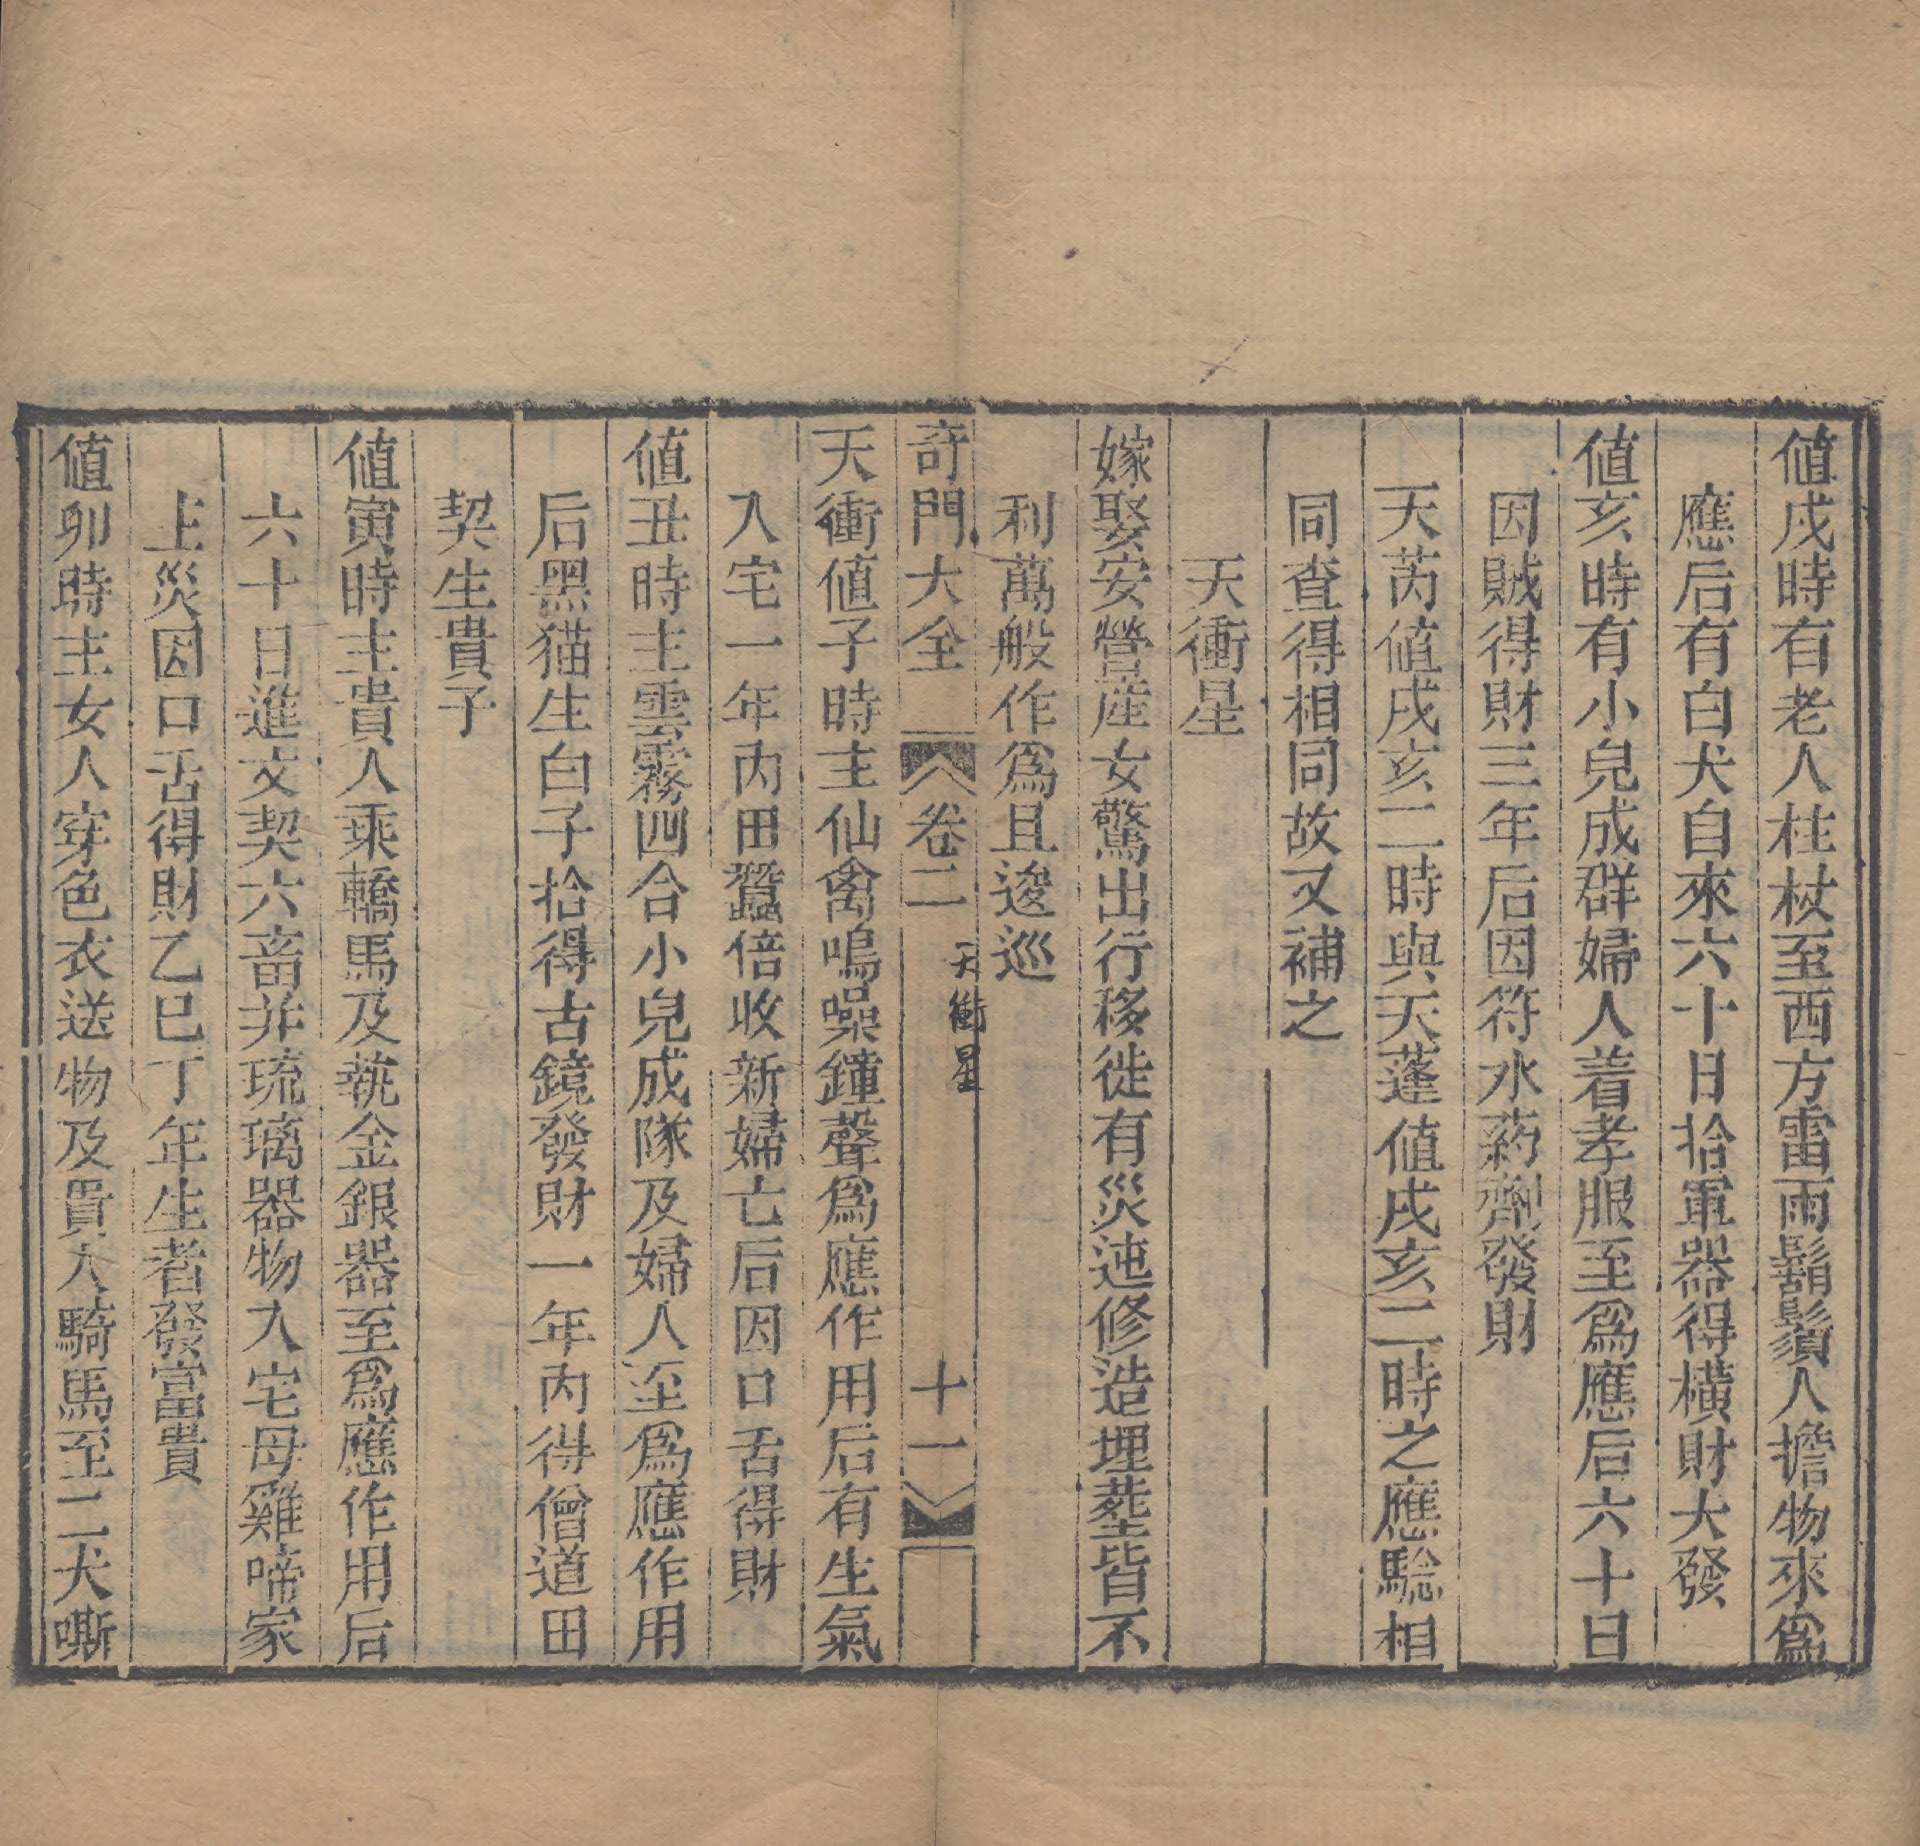 値戍時有老人柱杖至西方雷雨鬍鬚人擔物來爲
應后有白犬自來六十日拾軍器得橫財大發
値亥時有小皃成群婦人着孝服至爲應后六十日
因賊得財三年后因符水药劑發財
天芮値戌亥二時與天蓬值戌亥二時之應驗相
同查得相同故又補之
天衝星
嫁娶安營産女驚出行移徙有災迍修造埋塟皆不
利萬般作爲且逡巡
奇門大全 卷二 天衝星 十一
天衝値子時主仙禽鳴噪鐘聲爲應作用后有生氣
入宅一年內田蠶倍收新婦亡后因口舌得財
値丑時主雲霧四合小皃成隊及婦人至爲應作用
后黑猫生白子拾得古鏡發財一年內得僧道田
契生貴子
値寅時主貴人乘轎馬及執金銀器至爲應作用后
六十日進文契六畜并琉璃器物入宅母雞啼家
上災因口舌得財乙巳丁年生者發富貴
値卯時主女人穿色衣送物及貴人騎馬至二犬嘶